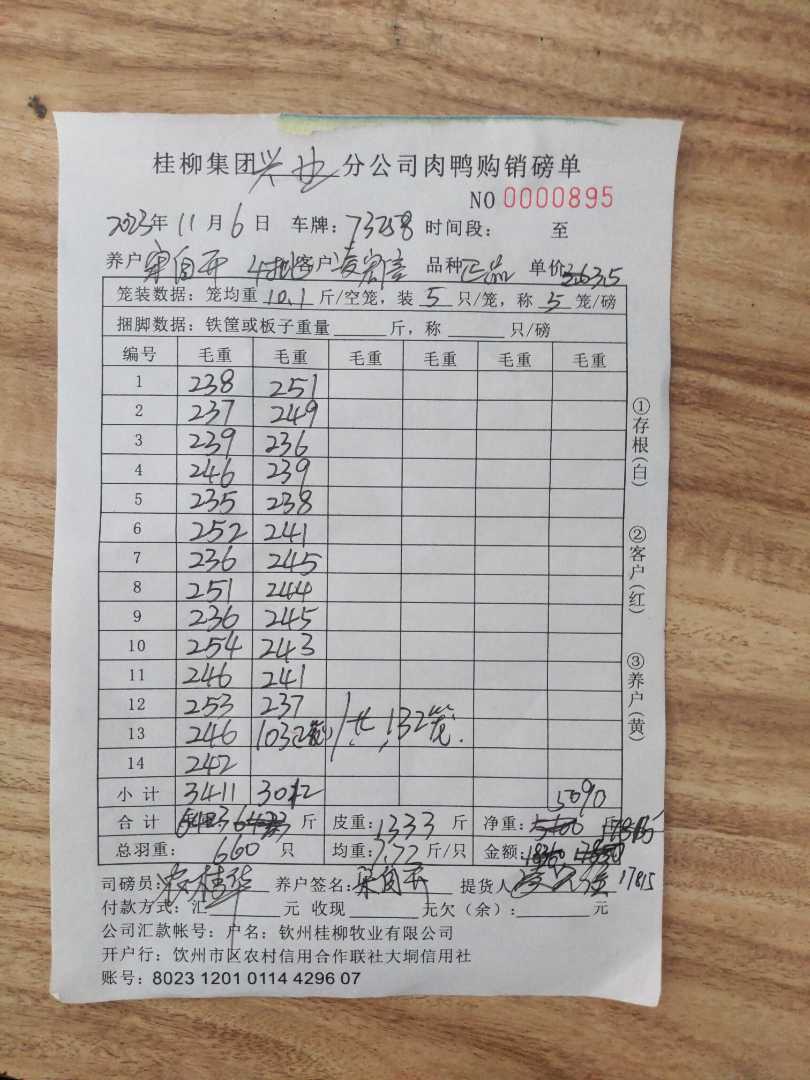 桂柳集团兴业分公司肉鸭购销磅单
NO 0000895
2023年11月6日 车牌:73258 时间段: 至
养户 客户凌 品种正品 单价3.635
笼装数据:笼均重10.1斤/空笼,装5只/笼,称5笼/磅
捆脚数据:铁筐或板子重量 斤,称 只/磅
编号 毛重 毛重 毛重 毛重 毛重 毛重
1 238 251
2 237 249
3 239 236
4 246 239
5 235 238
6 252 241
7 236 245
8 251 244
9 236 245
10 254 243
11 246 241
12 253 237
13 246 103(2笼) 共132笼.
14 242
小计 3411 3012 5090
合计 6423 斤 皮重:1333斤 净重: 斤
总羽重:660只 均重:7.72斤/只 金额:
17815
司磅员: 养户签名: 提货人
付款方式:汇 元 收现 元欠(余): 元
公司汇款帐号:户名:钦州桂柳牧业有限公司
开户行:饮州市区农村信用合作联社大垌信用社
账号:8023 1201 0114 4296 07
①存根(白)
②客户(红)
③养户(黄)